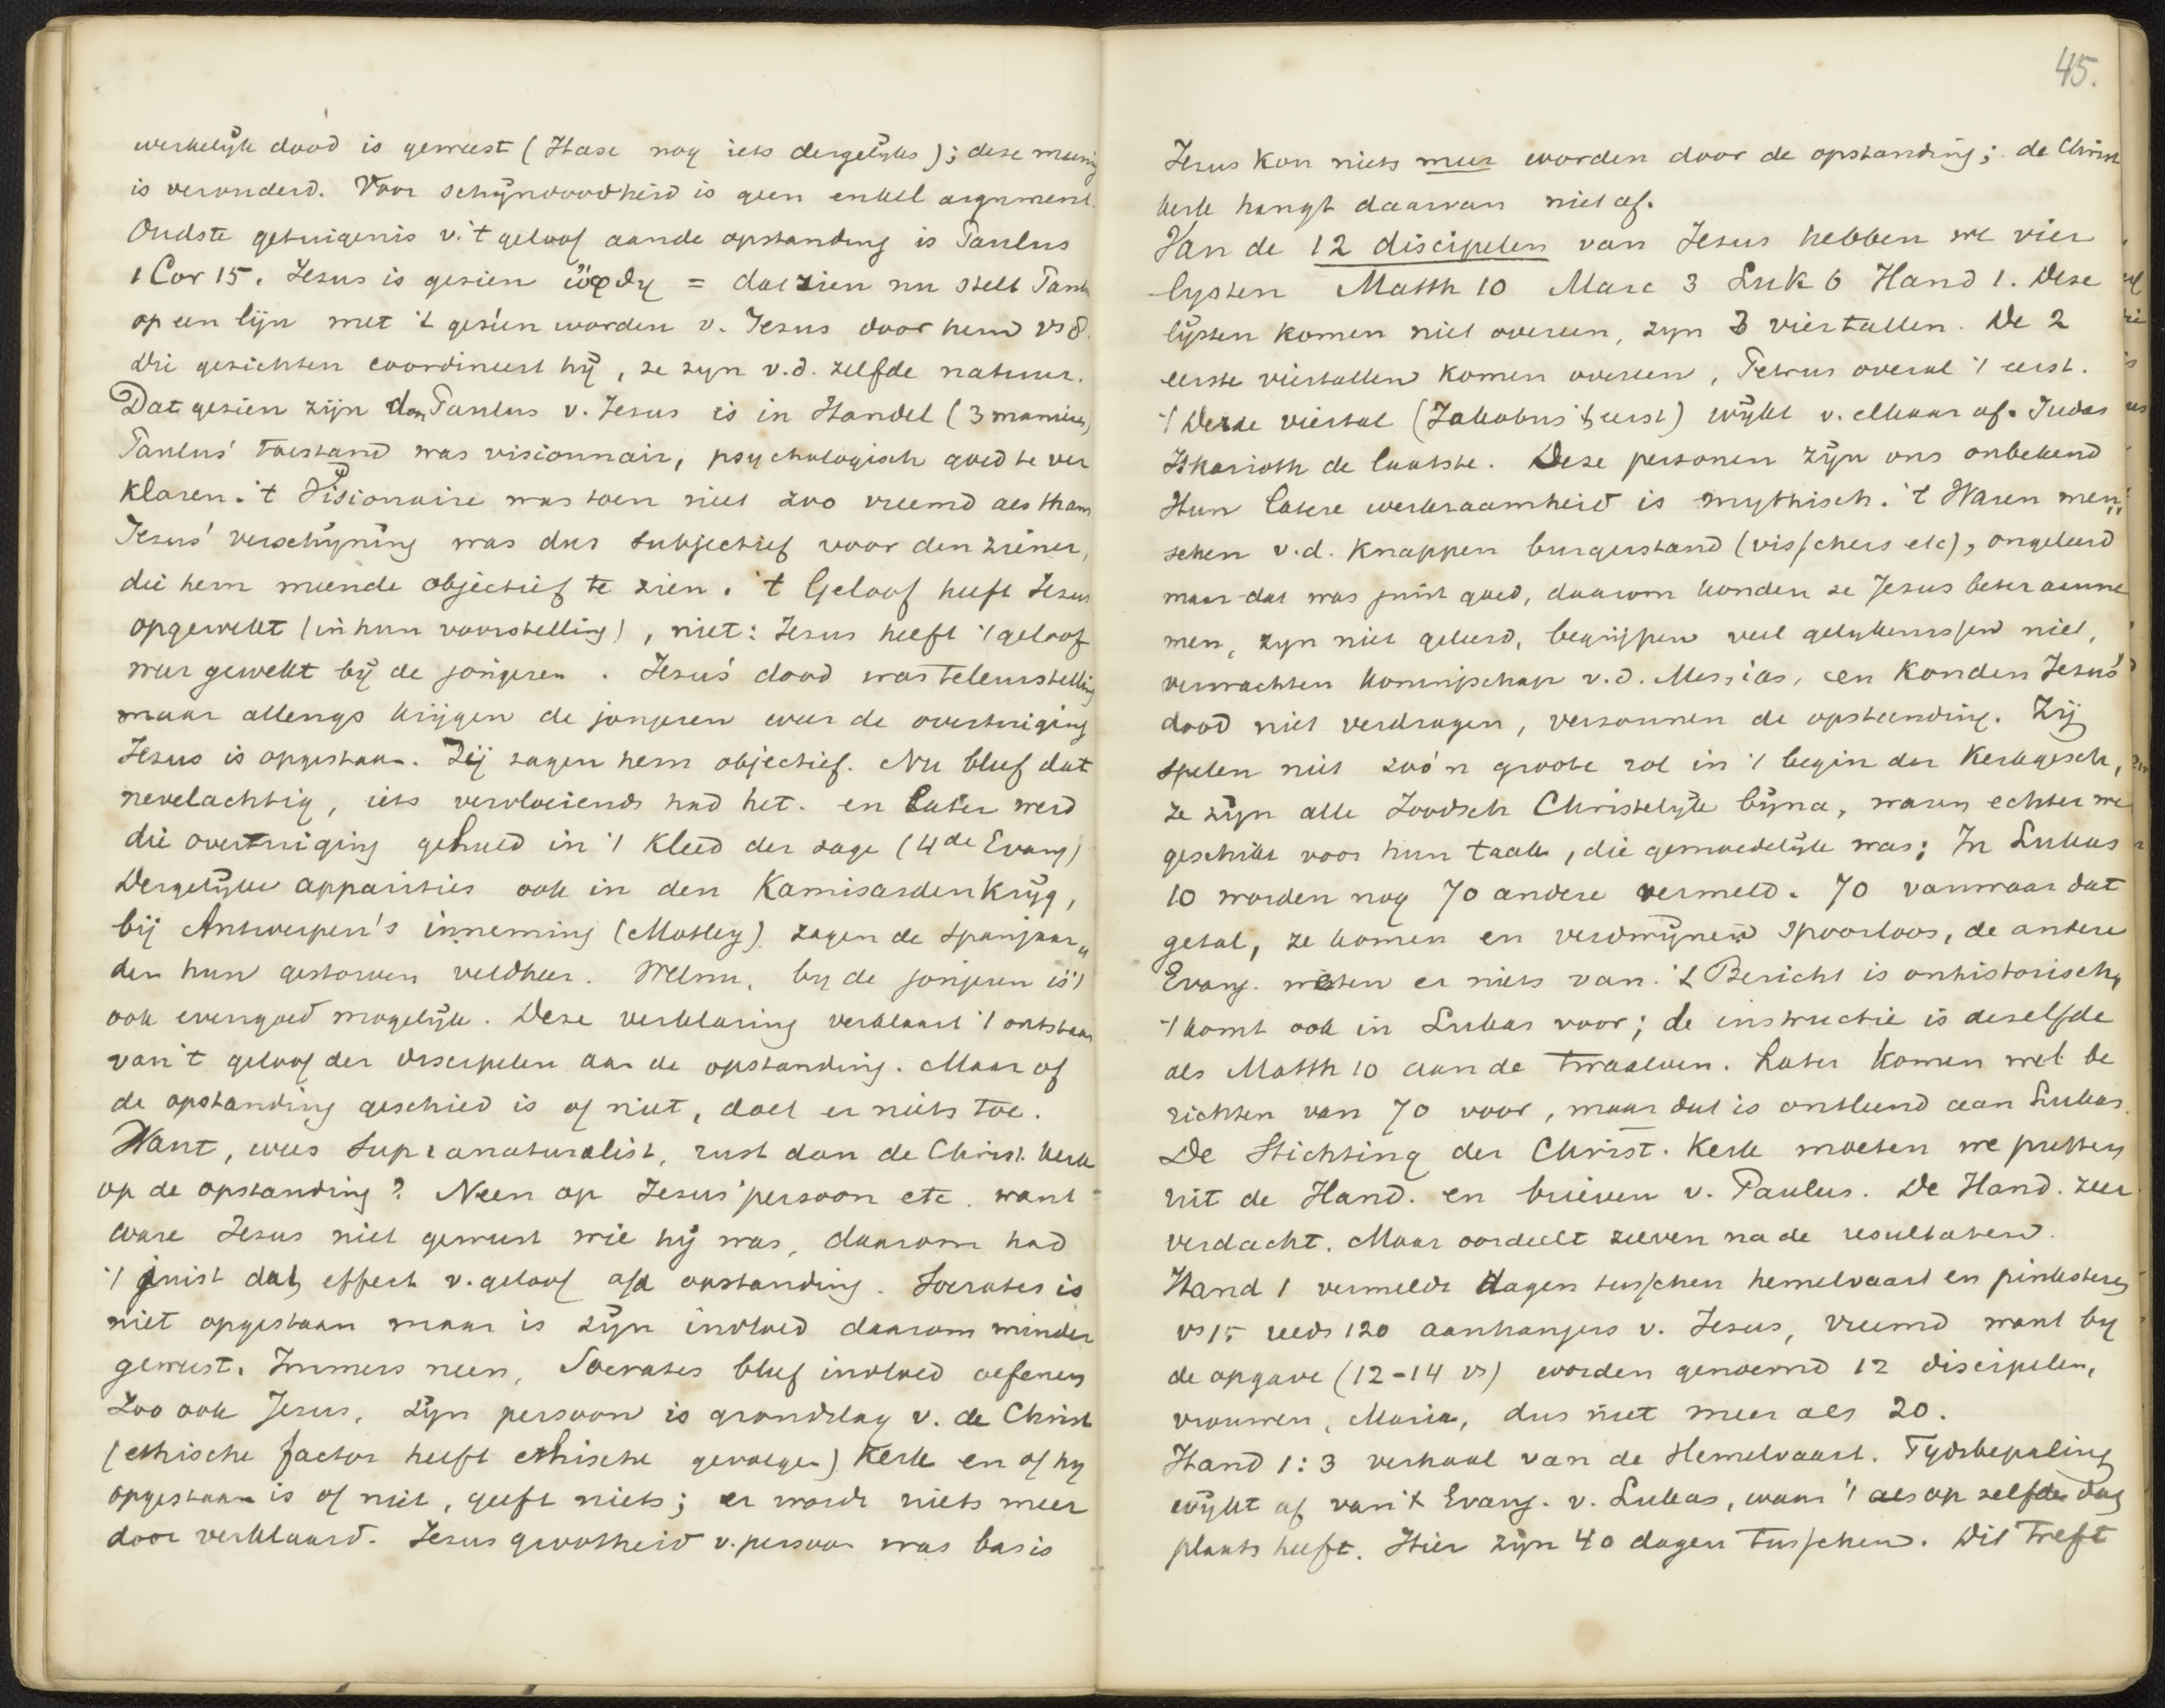 werkelijk dood is geweest (Hase nog iets dergelijks); deze meening
is verouderd. Voor schijndoodheid is geen enkel argument.
Oudste getuigenis v. 't geloof aan de opstanding is Paulus
1 Cor 15. Jezus is gezien ὤφθη = dat zien nu stelt Paulus
op een lijn met 't gezien worden v. Jezus door hem vs 8.
Die gezichten coordineert hij, ze zyn v.d. zelfde natuur.
Dat gezien zijn door Paulus v. Jezus is in Handel (3 manieren)
Paulus' toestand was visionnair, psychologisch goed te ver
klaren. 't Visionaire was toen niet zoo vreemd als thans
Jezus' verschijning was dus subjectief voor den ziener,
die hem meende objectief te zien. 't Geloof heeft Jezus
opgewekt (in hun voorstelling), niet: Jezus heeft 't geloof
weer gewekt bij de jongeren. Jezus' dood was teleurstelling
maar allengs krijgen de jongeren weer de overtuiging
Jezus is opgestaan. Zij zagen hem objectief. Nu bleef dat
nevelachtig, iets vervloeiends had het. en later werd
die overtuiging gehuld in 't kleed der sage (4de Evang)
Dergelijke apparities ook in den Kamisardenkrijg,
bij Antwerpen's inneming (Motley) zagen de Spanjaar„
den hun gestorven veldheer. Welnu, by de jongeren is 't
ook evengoed mogelijk. Deze verklaring verklaart 't ontstaan
van 't geloof der discipelen aan de opstanding. Maar of
de opstanding geschied is of niet, doet er niets toe.
Want, wees supranaturalist, rust dan de Christ. kerk
op de opstanding? Neen op Jezus' persoon etc. want
ware Jezus niet geweest wie hij was, daarom had
't juist dat effect v. geloof a/d opstanding. Socrates is
niet opgestaan maar is zijn invloed daarom minder
geweest. Immers neen, Socrates bleef invloed oefenen
Zoo ook Jezus, zijn persoon is grondslag v. de Christ
(ethische factor heeft ethische gevolgen) kerk en of hy
opgestaan is of niet, geeft niets; er wordt niets meer
door verklaard. Jezus grootheid v. persoon was basis
45.
Jezus kon niets meer worden door de opstanding; de Christ
kerk hangt daarvan niet af.
Van de 12 discipelen van Jezus hebben we vier
lysten Matth 10 Marc 3 Luk 6 Hand 1. Deze
lijsten komen niet overeen, zyn 3 viertallen. De 2
eerste viertallen komen overeen, Petrus overal 't eerst.
't Derde viertal (Jakobus 't eerst) wijkt v. elkaar af. Judas
Iskarioth de laatste. Deze personen zijn ons onbekend
Hun latere werkzaamheid is mythisch. 't Waren men„
schen v.d. knappen burgerstand (visschers etc), ongeleerd
maar dat was juist goed, daarom konden ze Jezus beter aanne
men, zyn niet geleerd, begrijpen veel gelykenissen niet,
verwachten koningschap v.d. Messias, en konden Jezus'
dood niet verdragen, verzonnen de opstanding. Zij
spelen niet zoo'n groote rol in 't begin der kerkgesch,
ze zijn alle Joodsch Christelijk bijna, waren echter wel
geschikt voor hun taak, die gemoedelijk was; In Lukas
10 worden nog 70 andere vermeld. 70 vanwaar dat
getal, ze komen en verdwijnen spoorloos, de andere
Evang. weten er niets van. 't Bericht is onhistorisch,
't komt ook in Lukas voor; de instructie is dezelfde
als Matth 10 aan de twaalven. Later komen wel be
richten van 70 voor, maar dat is ontleend aan Lukas.
De Stichting der Christ. Kerk moeten we putten
uit de Hand. en brieven v. Paulus. De Hand. zeer
verdacht. Maar oordeelt zelven na de resultaten.
Hand 1 vermeldt dagen tusschen hemelvaart en pinksteren
vs 15 reeds 120 aanhangers v. Jezus, vreemd want by
de opgave (12-14 vs) worden genoemd 12 discipelen,
vrouwen, Maria, dus niet meer als 20.
Hand 1:3 verhaal van de Hemelvaart. Tydsbepaling
wijkt af van 't Evang. v. Lukas, waar 't als op zelfde dag
plaats heeft. Hier zijn 40 dagen tusschen. Dit treft